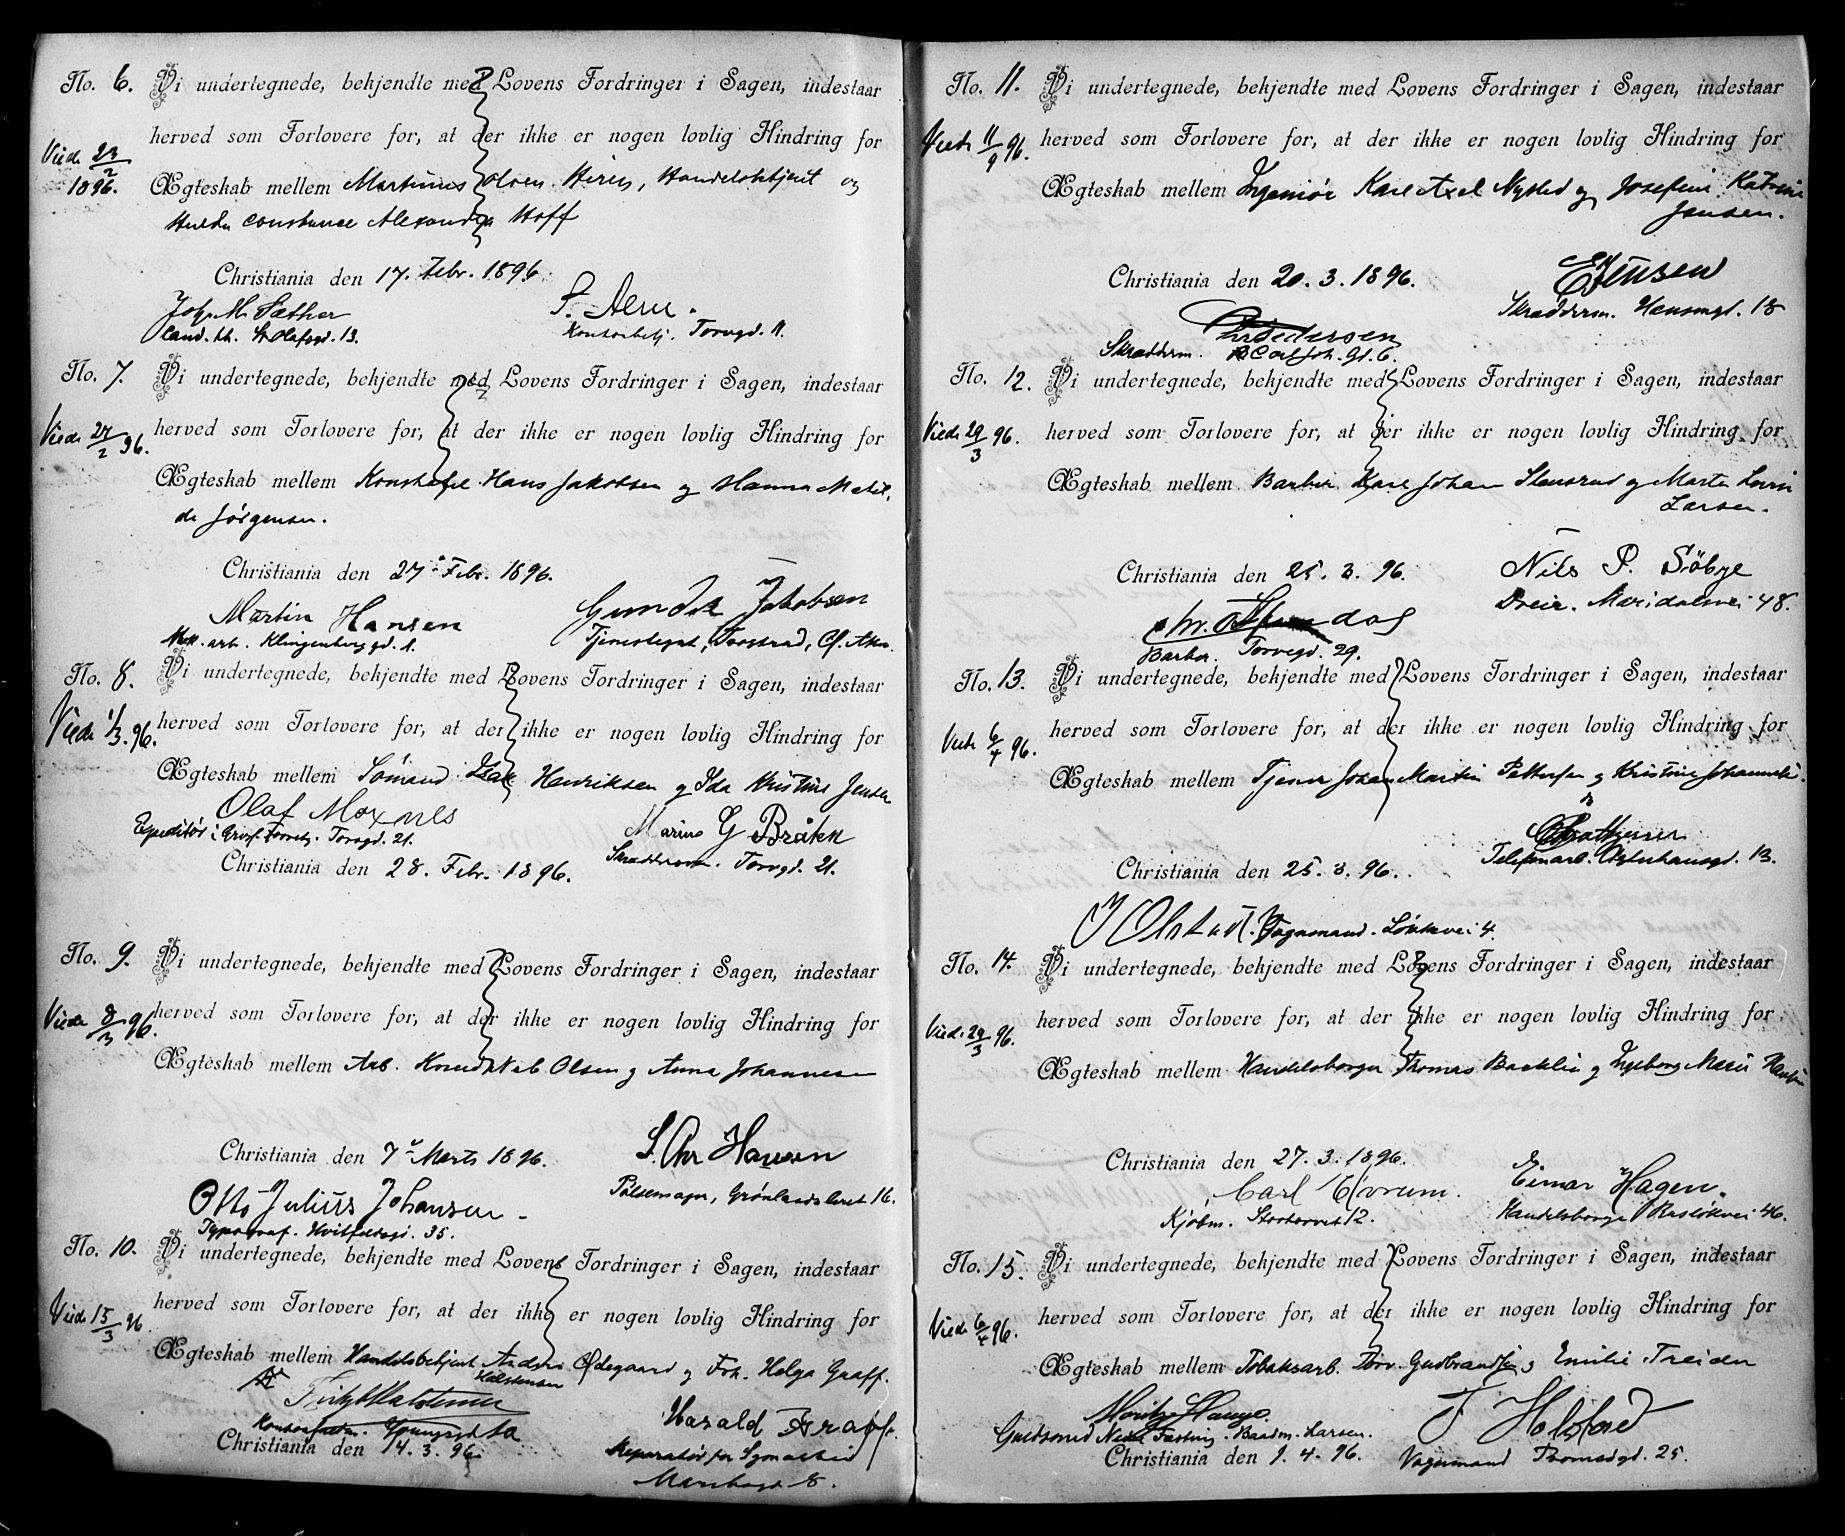 No. 6. Vi undertegnede, bekjendte med Lovens Fordringer i Sagen, indestaar
herved som Forlovere for, at der ikke er nogen lovlig Hindring for
Viede 23/2
1896.
Ægteskab mellem Martinus Olsen Hiren, Handelsbetjent og
Hulda Constance Alexandra Hoff
Christiania den 17. Febr. 1896.
Joh. M. Sæther
Cand. th. St. Olafsgd. 13.
S. Aeru.
Kontorbetj. Torvgd. 11.
No. 7. Vi undertegnede, bekjendte med Lovens Fordringer i Sagen, indestaar
Viede 27/2 96.
herved som Forlovere for, at der ikke er nogen lovlig Hindring for
Ægteskab mellem Konstabel Hans Jakobsen og Hanna Matil,
de Jørgensen.
Christiania den 27 Febr. 1896.
Martin Hansen
Mek. arb. Klingenberggd. 1.
Gunder Jakobsen
Tjenestegut, Taastrud,
No. 8. Vi undertegnede, bekjendte med Lovens Fordringer i Sagen, indestaar
Viede 1/3. 96.
herved som Forlovere for, at der ikke er nogen lovlig Hindring for
Ægteskab mellem Sømand Isak Henriksen og Ida Kristine Jensen
Olaf Moxnes
Expeditør i Torvgd. 21.
Marius G Bråten
Skræddersv. Torvgd. 21.
Christiania den 28. Febr. 1896.
No. 9. Vi undertegnede, bekjendte med Lovens Fordringer i Sagen, indestaar
Viede 8/3 96.
herved som Forlovere for, at der ikke er nogen lovlig Hindring for
Ægteskab mellem Arb. Olsen og Anna Johannesen
Christiania den 7 Marts 1896.
S. Chr Hansen
Pølsemager, Grønlandsleret 16.
Otto Julius Johansen
Typograf. Hvitfeldtsgd. 35.
No. 10. Vi undertegnede, bekjendte med Lovens Fordringer i Sagen, indestaar
Viede 15/3 96.
herved som Forlovere for, at der ikke er nogen lovlig Hindring for
Ægteskab mellem Handelsbetjent Anders Ødegaard og Frk. Helga Graff.
Halstensen
Halstensen
Youngsgd
Harald Graff.
Reparatør for Symaskin
8.
Christiania den 14. 3. 96.
No. 11. Vi undertegnede, bekjendte med Lovens Fordringer i Sagen, indestaar
Viede 11/9 96.
herved som Forlovere for, at der ikke er nogen lovlig Hindring for
Ægteskab mellem Ingeniør Karl Axel Nysted og Josefine Katrine
Jensen.
Christiania den 20. 3. 1896.
E Jensen
Skrædderm. Hausmgd. 18
Pedersen
Skrædderm. Carl Joh. Gd. 6.
No. 12. Vi undertegnede, bekjendte med Lovens Fordringer i Sagen, indestaar
Viede 29/3 96.
herved som Forlovere for, at der ikke er nogen lovlig Hindring for
Ægteskab mellem Barber Karl Johan Stensrud og Marta Lovise
Larsen.
Christiania den 25. 3. 96.
Nils P. Söbye
Dreier. Maridalsvei 48.
Chr.
Barber. Torvegd. 29.
No. 13. Vi undertegnede, bekjendte med Lovens Fordringer i Sagen, indestaar
Viede 6/4 96.
herved som Forlovere for, at der ikke er nogen lovlig Hindring for
Ægteskab mellem Tjener Johan Martin Pettersen og Kristine Johannesen
Telefonarb. Osterhausgd. 13.
Christiania den 25. 3. 96.
J Olstad. Vognmand. Løkkevei 4.
No. 14. Vi undertegnede, bekjendte med Lovens Fordringer i Sagen, indestaar
Viede 29/3 96.
herved som Forlovere for, at der ikke er nogen lovlig Hindring for
Ægteskab mellem Handelsborger Thomas Backlin og Ingeborg Marie Hansen
Christiania den 27. 3. 1896.
Einar Hagen.
Handelsborger 46.
Carl
Kjøbm. Stortorvet 12.
No. 15. Vi undertegnede, bekjendte med Lovens Fordringer i Sagen, indestaar
Viede 6/4 96.
herved som Forlovere for, at der ikke er nogen lovlig Hindring for
Ægteskab mellem Tobaksarb. Torv. Gudbrandsen og Emilie Treider
Moritz Hauge.
Baadm. Larsen.
T Holsford
Vognmand Tromsøgd. 25.
Christiania den 1. 4. 96.